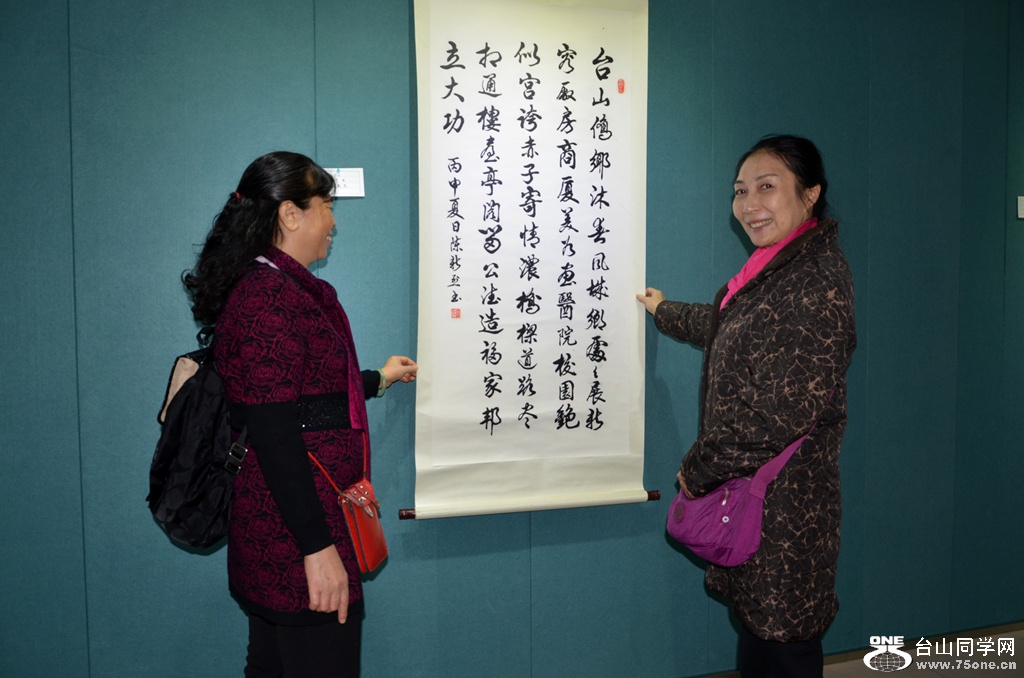 台山僑鄉沐春風城鄉處々展新
容廠房商厦美如畫醫院校園艷
似宮誇赤子寄情濃橋樑道路盡
相通樓臺亭閣留公德造福家邦
立大功
丙申夏日陳新書
ONE
台山同学网
www.75one.cn